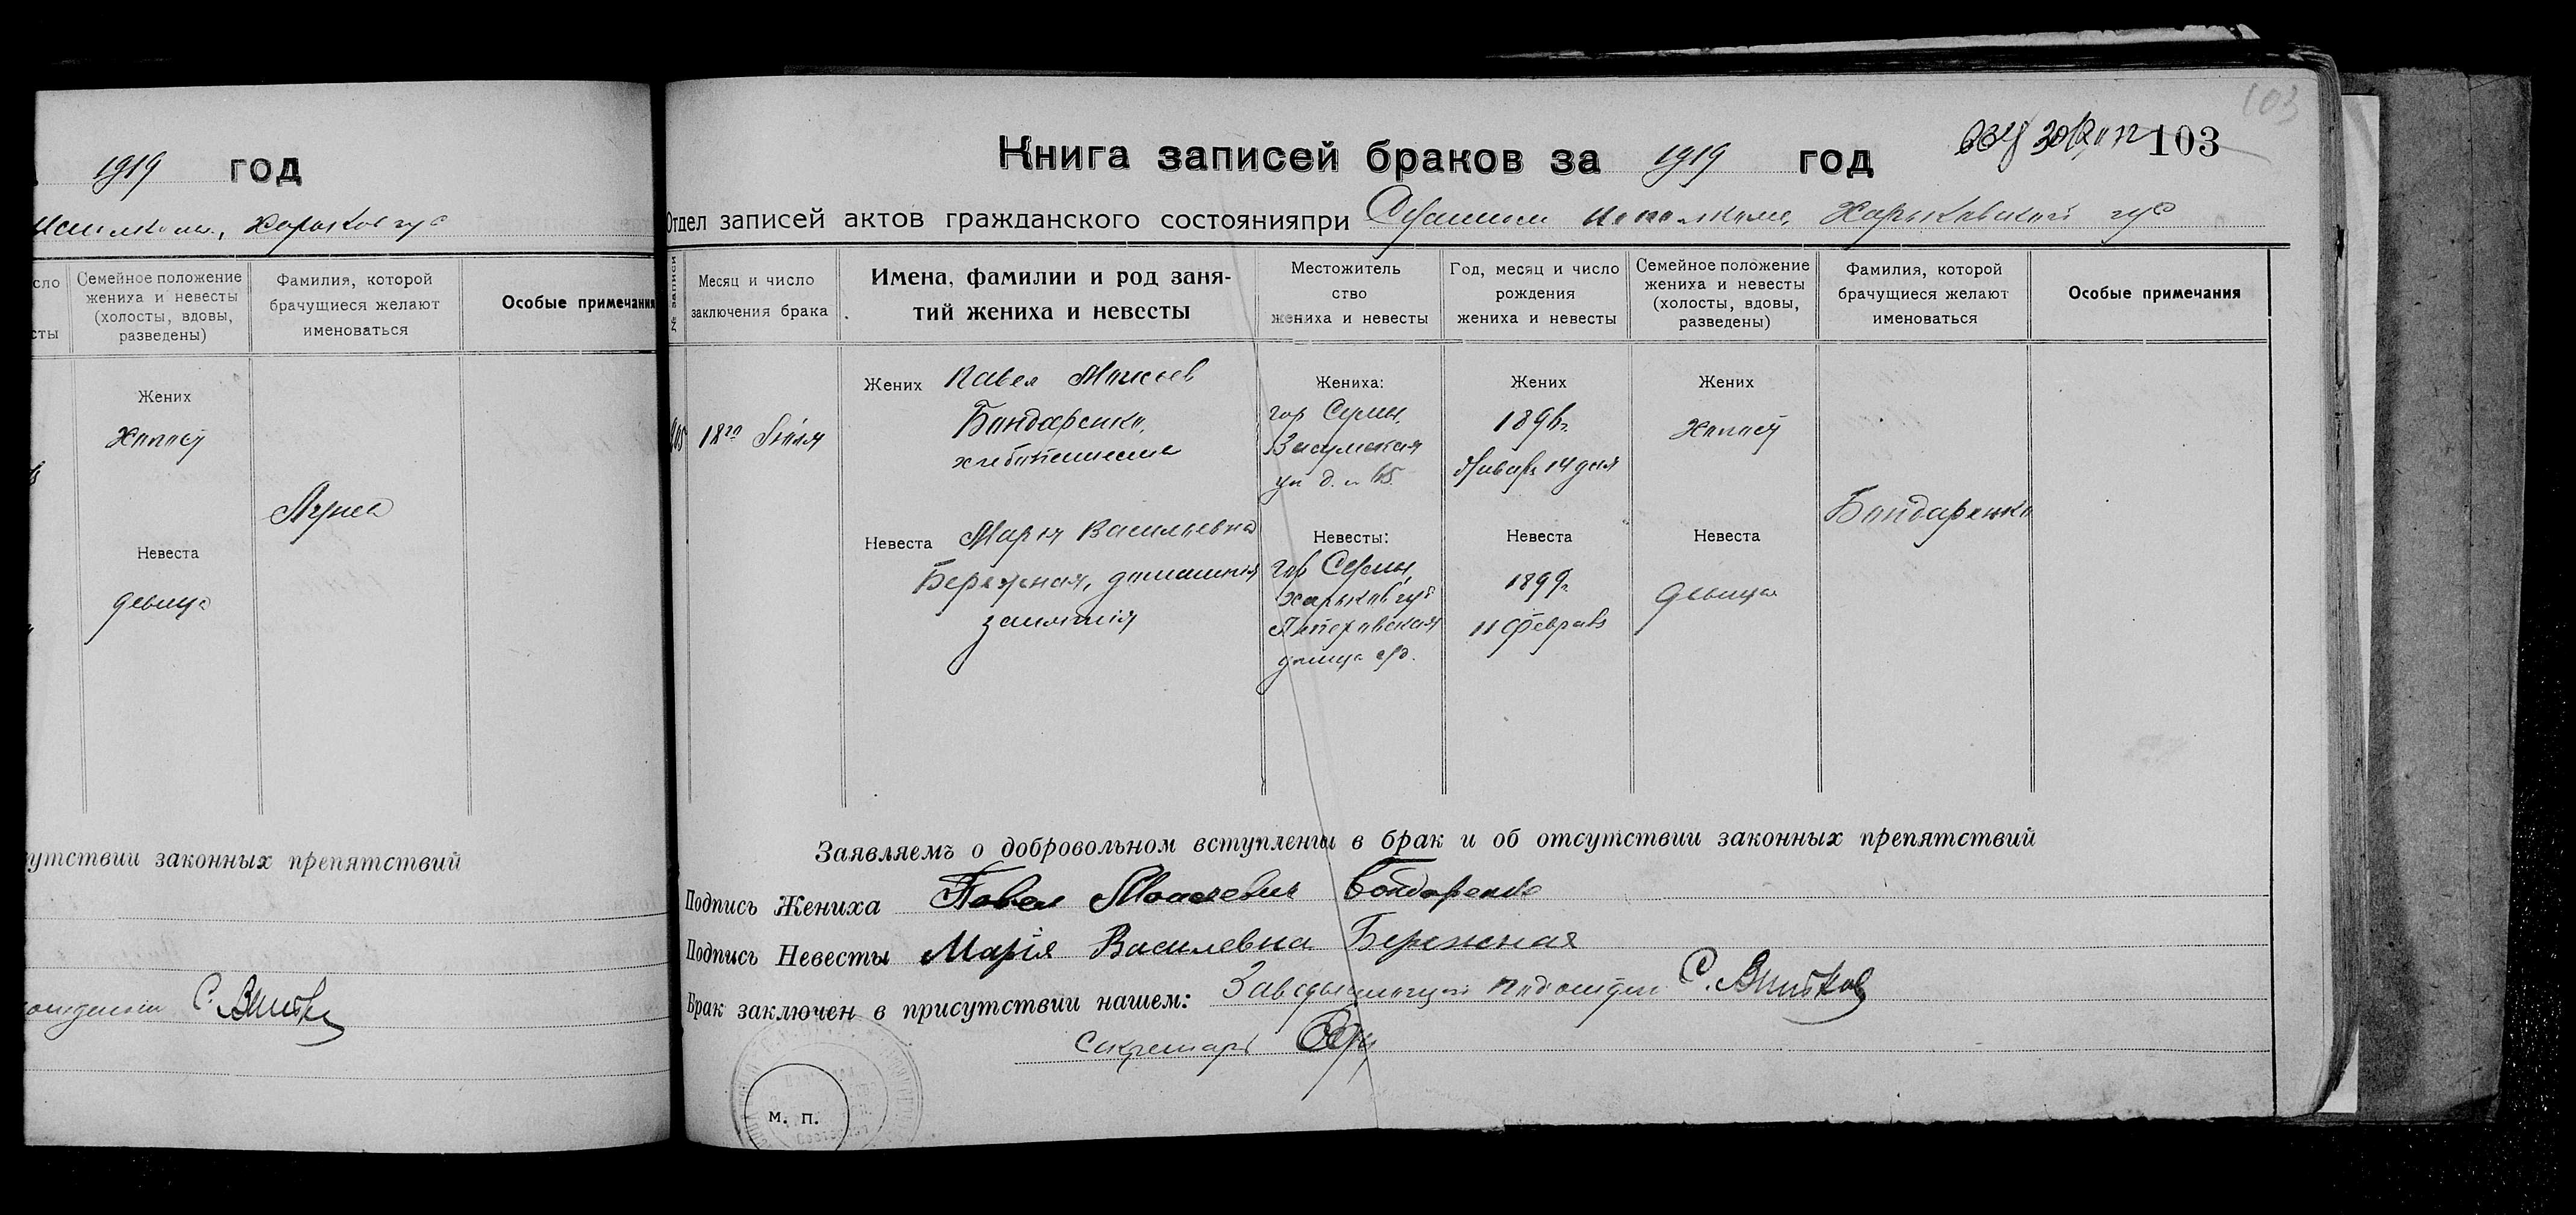 1919 год
Харьков губ
сло
сты
Семейное положение
жениха и невесты
(холосты, вдовы,
разведены)
Фамилия, которой
брачущиеся желают
именоваться
Особые примечания
Жених
Холост
Невеста
девица
утствии законных препятствий
103
103
Книга записей браков за 1919 год
Отдел записей актов гражданского состоянияпри Сумском исполкоме, Харьковской губ
№ записи
Месяц и число
заключения брака
Имена, фамилии и род заня-
тий жениха и невесты
Местожитель
ство
жениха и невесты
Год, месяц и число
рождения
жениха и невесты
Семейное положение
жениха и невесты
(холосты, вдовы,
разведены)
Фамилия, которой
брачущиеся желают
именоваться
Особые примечания
18го Июля
Жених Павел Моисеев
Бондаренко,
хлебопашец
Невеста Мария Васильевна
Бережная, домашния
занятия
Жениха:
гор Сумы,
Засумская
ул д.
Невесты:
гор Сумы,
Харьков губ
улица
Жених
Январь 14 дня
Невеста
1899г.
11 Февраля
Жених
Холост
Невеста
девица
Бондаренко
Заявляемъ о добровольном вступлении в брак и об отсутствии законных препятствий
Подпись Жениха Павел Моисеевич Бондаренко
Подпись Невесты Марія Василевна Бережная
Брак заключен в присутствии нашем: Заведывающий подотдел С.
Секретарь
м. п.